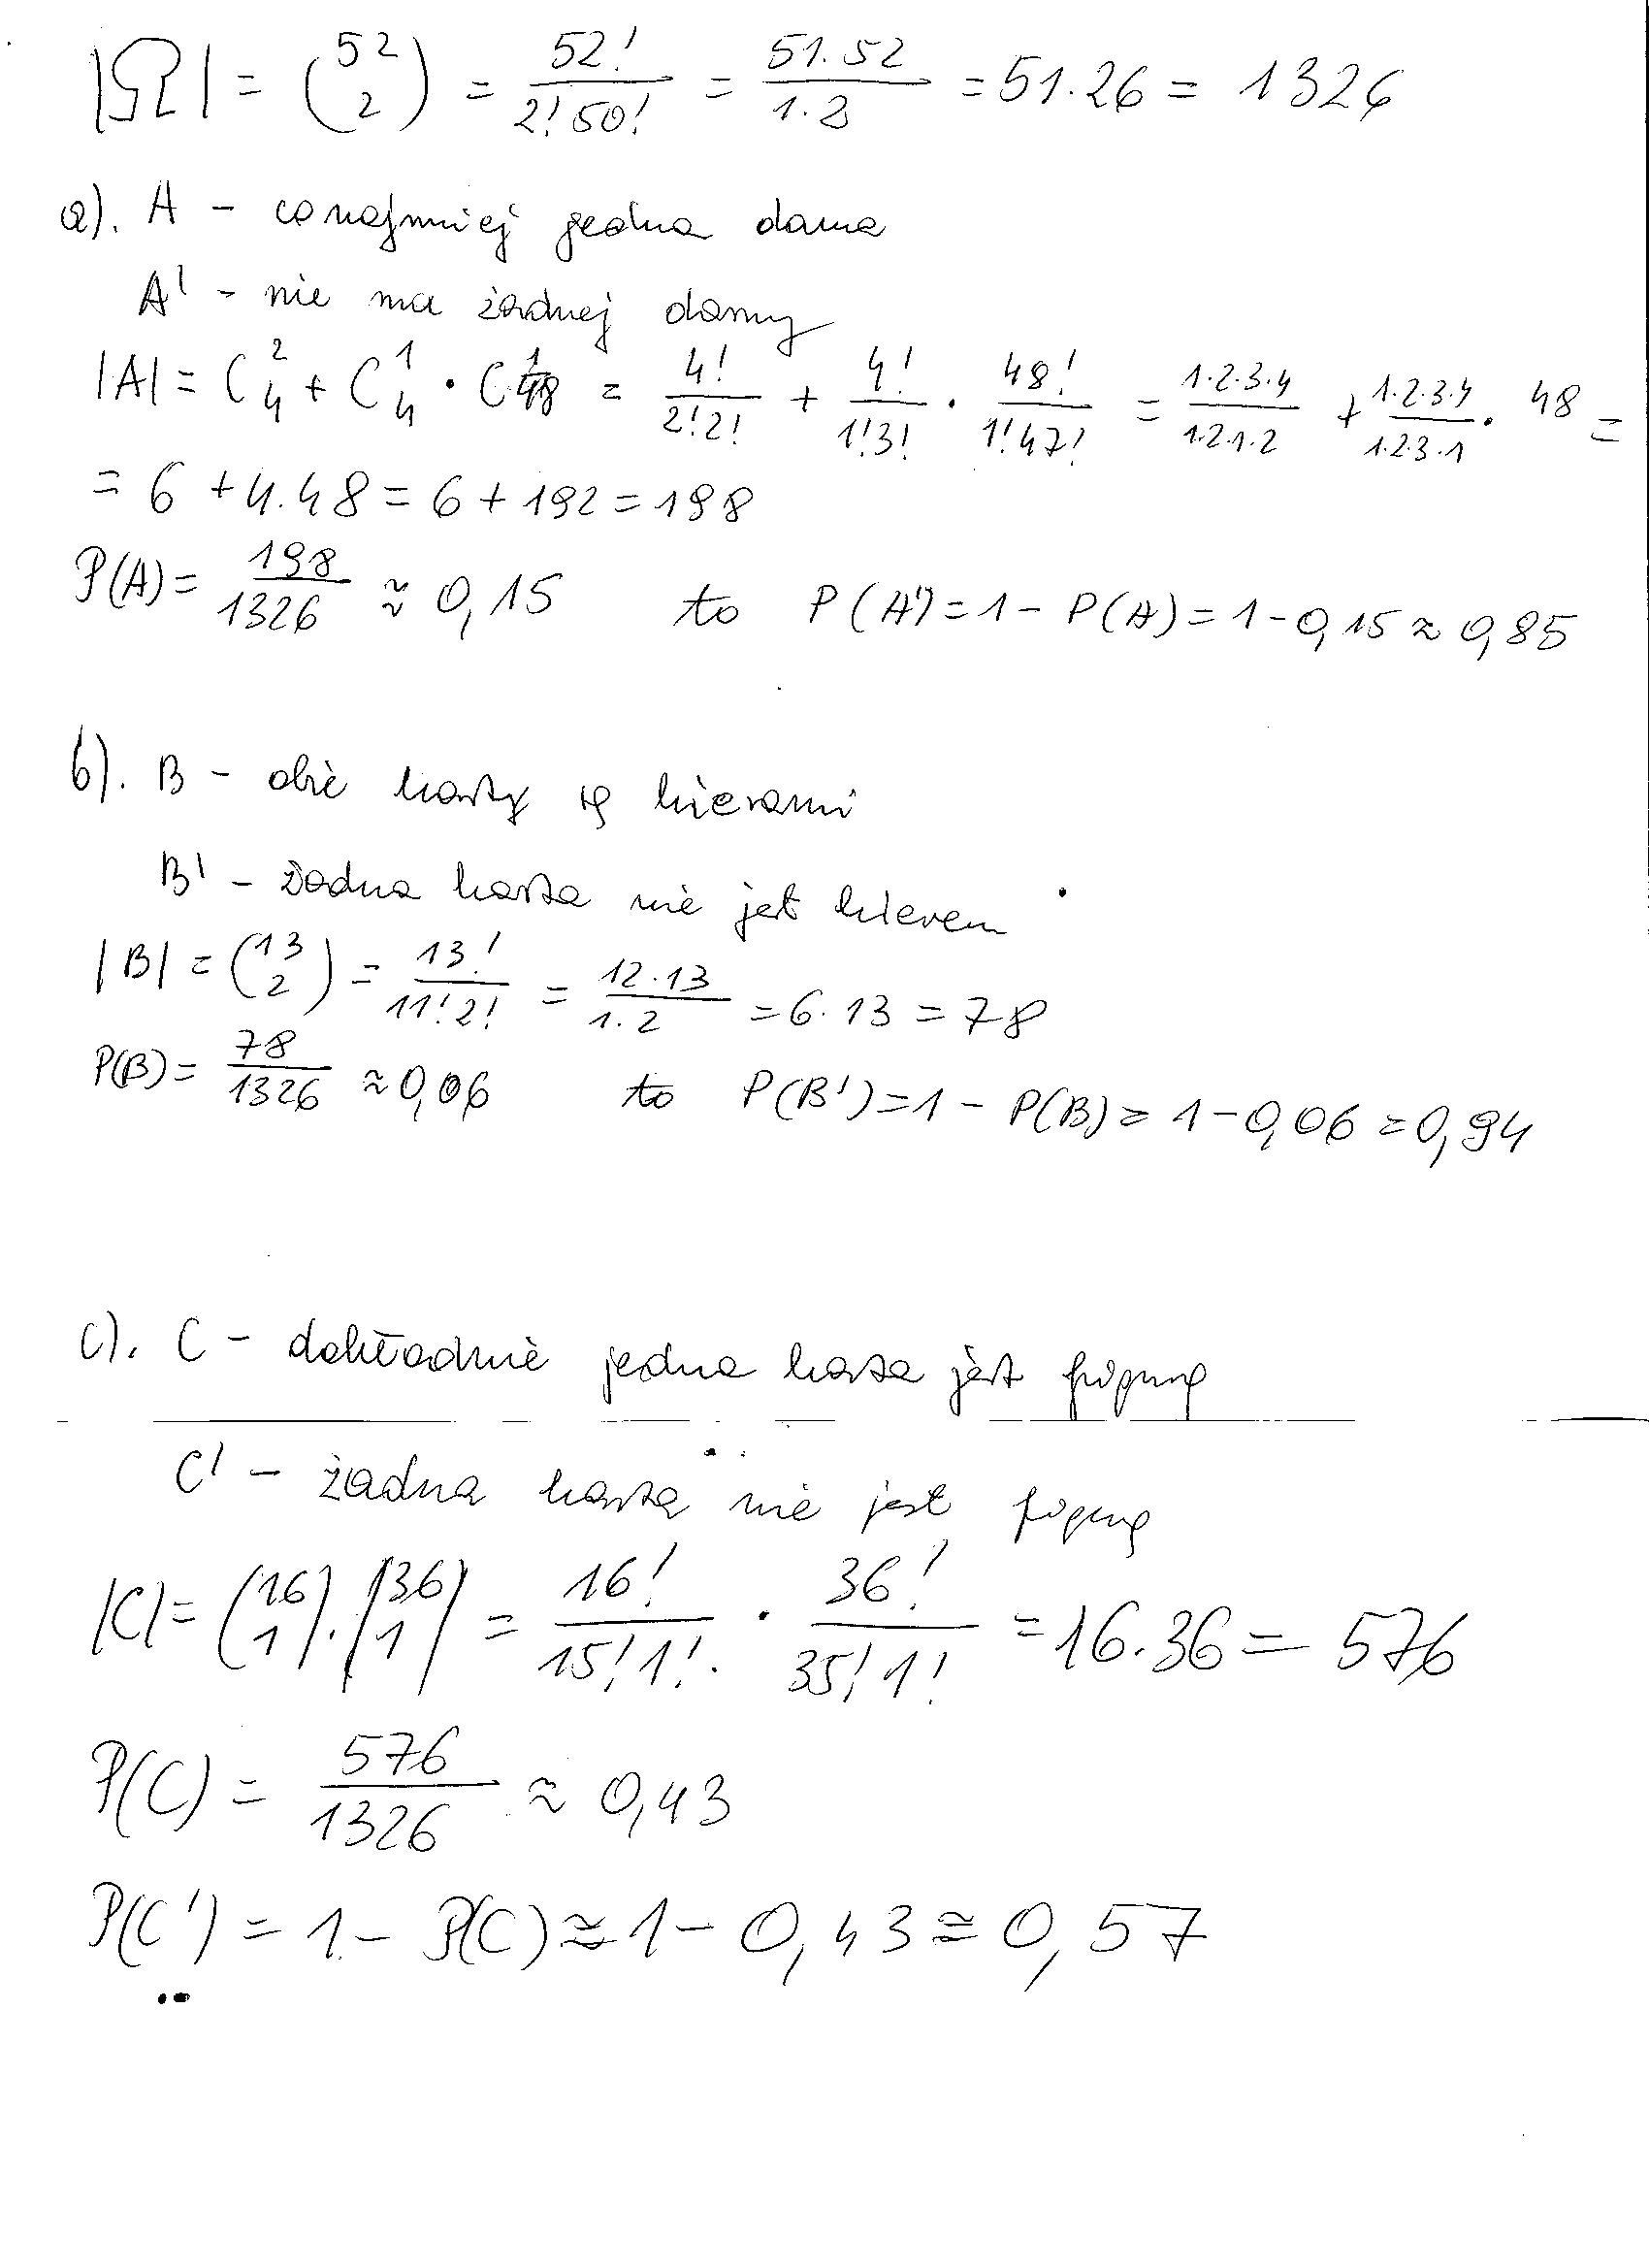 |Ω| = (52 2) = 52!/2!50! = 51.52/1.2 = 51.26 = 1326
a). A - conajmniej jedna dama
A' - nie ma żadnej damy
|A| = C²₄ + C¹₄ · C¹₄₈ = 4!/2!2! + 4!/1!3! · 48!/1!47! = 1·2·3·4/1·2·1·2 + 1·2·3·4/1·2·3·1 · 48 =
= 6 + 4.48 = 6 + 192 = 198
P(A) = 198/1326 ≈ 0,15 to P(A') = 1 - P(A) = 1 - 0,15 ≈ 0,85
b). B - obie karty są kierami
B' - Żadna karta nie jest kierem
|B| = (13 2) = 13!/11!2! = 12.13/1.2 = 6.13 = 78
P(B) = 78/1326 ≈ 0,06 to P(B') = 1 - P(B) = 1 - 0,06 = 0,94
c). C - dokładnie jedna karta jest figurą
C' - żadna karta nie jest figurą
|C| = (16 1).(36 1) = 16!/15!1! · 36!/35!1! = 16.36 = 576
P(C) = 576/1326 ≈ 0,43
P(C') = 1 - P(C) ≈ 1 - 0,43 ≈ 0,57